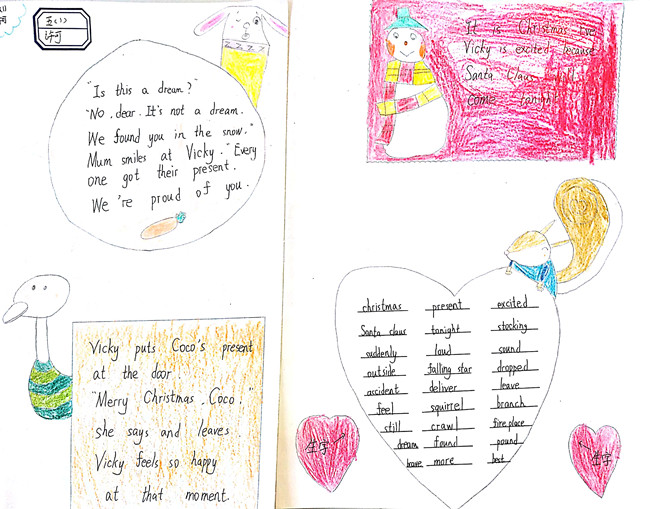 五(1)
许可
"Is this a dream?"
"No, dear. It's not a dream.
We found you in the snow."
Mum smiles at Vicky. "Every
one got their present.
We're proud of you.
Vicky puts Coco's present
at the door.
"Merry Christmas, Coco."
she says and leaves
Vicky feels so happy
at that moment.
"It is Christmas Eve,
Vicky is excited because
Santa Claus will
come tonight
christmas present excited
Santa claus tonight stocking
suddenly loud sound
outside falling star dropped
accident deliver leave
feel squirrel branch
still crawl fireplace
dream found pound
leave more best
生字
生字